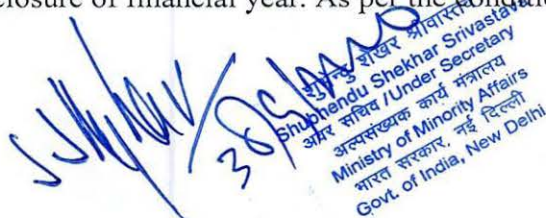 closure of financial year. As per the
शुभेन्दु शेखर श्रीवास्तव
Shubhendu Shekhar Srivastava
अवर सचिव / Under Secretary
अल्पसंख्यक कार्य मंत्रालय
Ministry of Minority Affairs
भारत सरकार, नई दिल्ली
Govt. of India, New Delhi